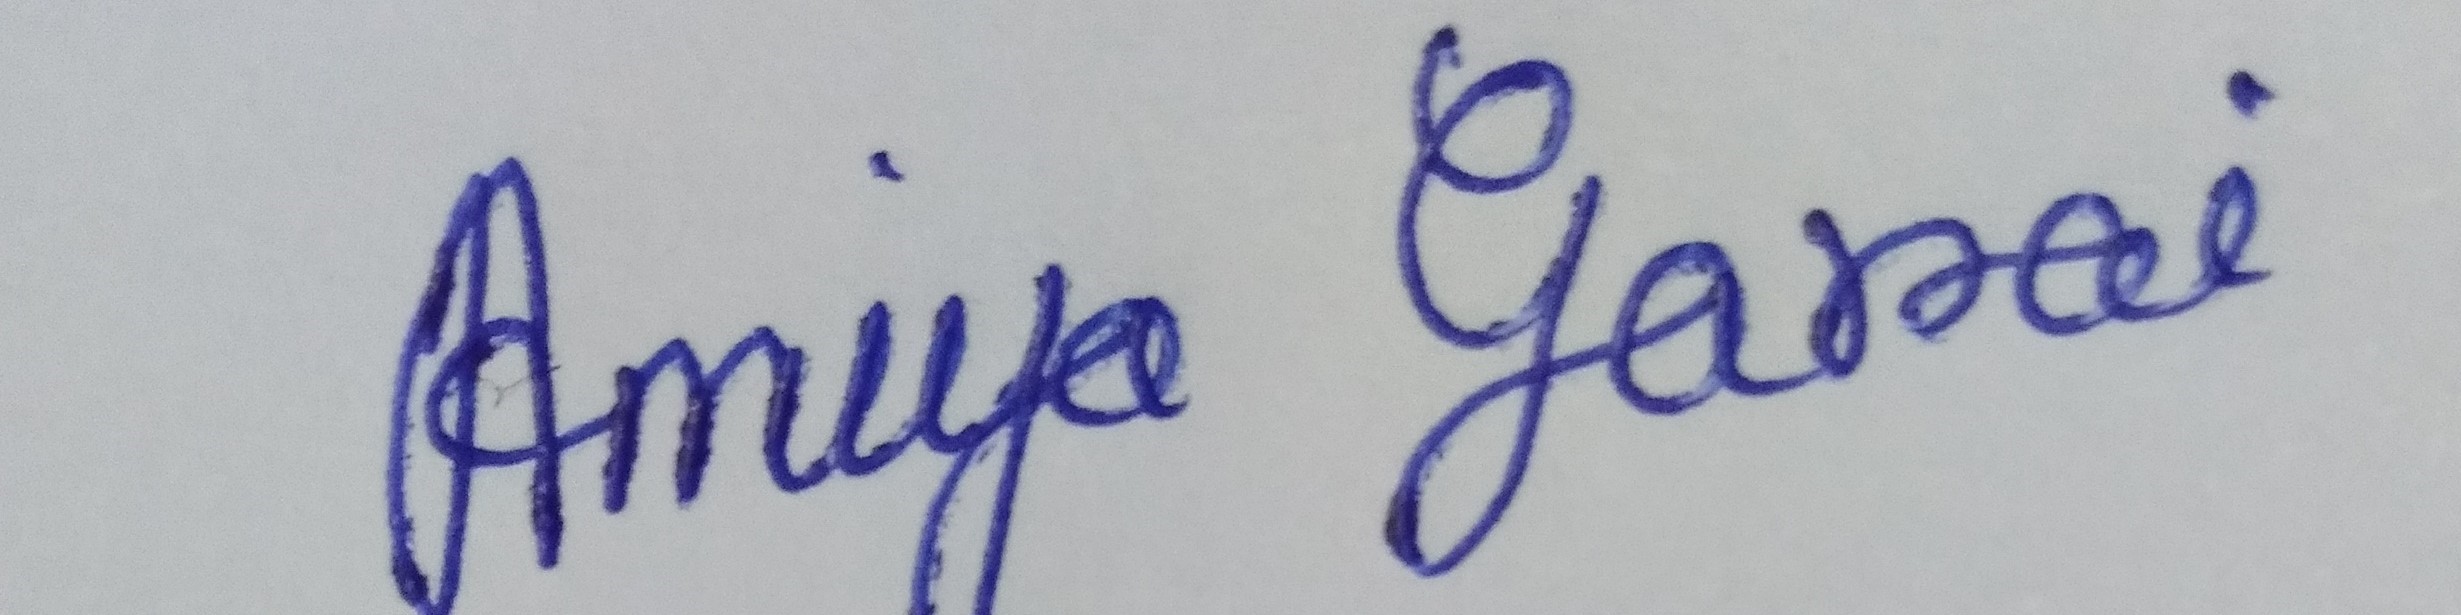 Amiya Garai